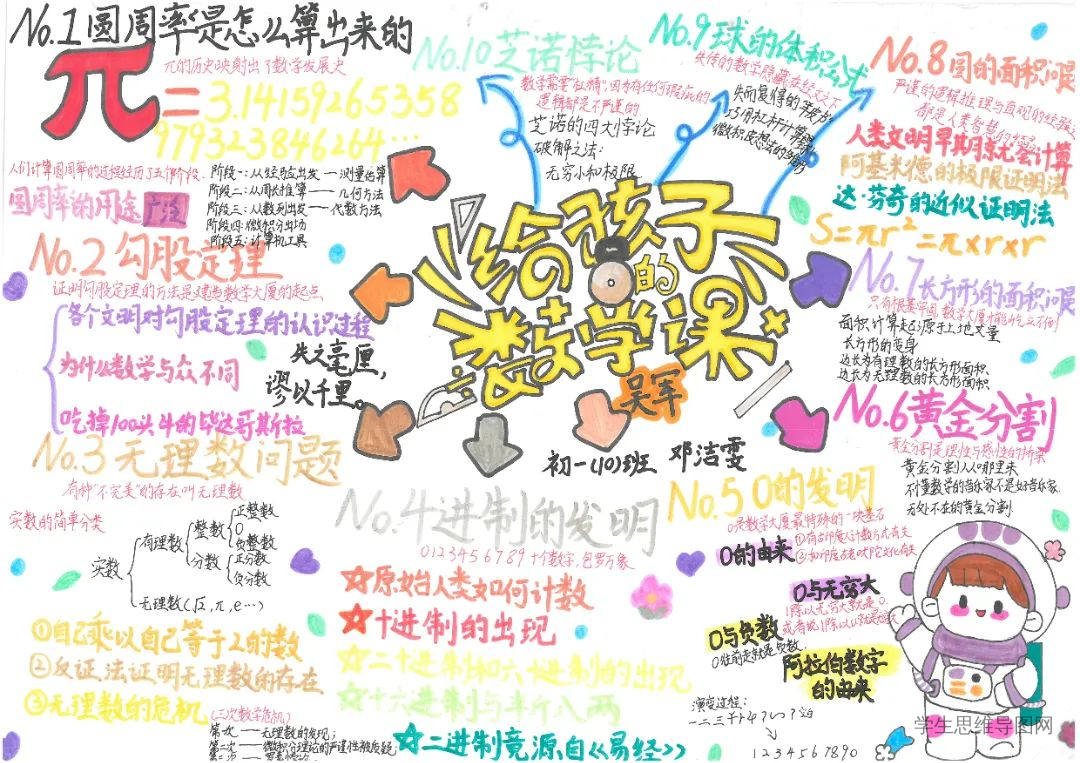 No.1圆周率是怎么算出来的
π的历史映射出了数学发展史
π=3.14159265358
979323846264…
人们计算圆周率的过程经历了五个阶段.
阶段一:从经验出发—测量估算
阶段二:从周长推算——几何方法
阶段三:从数列出发—代数方法
阶段四:微积分出场
阶段五:计算机工具
圆周率的用途 广泛
No.2勾股定理
证明勾股定理的方法是建造数学大厦的起点
各个文明对勾股定理的认识过程
为什么数学与众不同
吃掉100头牛的毕达哥斯拉
失之毫厘,
谬以千里。
No.3无理数问题
有种"不完美"的存在叫无理数
实数的简单分类
实数
有理数
整数
正整数
0
负整数
分数
正分数
负分数
无理数(√2,π,e…)
①自己乘以自己等于2的数
②反证法证明无理数的存在
③无理数的危机
(三次数学危机)
第一次——无理数的发现;
第二次——微积分理论的严谨性被质疑;
No.4进制的发明
0123456789十个数字,包罗万象
原始人类如何计数
十进制的出现
二十进制和六十进制的出现
十六进制与半斤八两
二进制竟源自《易经》
No.5 0的发明
0是数学大厦最特殊的一块基石
0的由来
①与古印度人计数方式有关
②和印度古老吠陀文化有关
0与无穷大
1除以无穷大就是0.
0与负数
0往前走就是负数.
阿拉伯数字
的由来
演变过程:
1234567890
No.6黄金分割
黄金分割是理性与感性的桥梁
黄金分割从哪里来
不懂数学的音乐家不是好音乐家.
无处不在的黄金分割
No.7长方形的面积问题
面积计算起源于土地丈量
长方形的变身
边长为有理数的长方形面积
边长为无理数的长方形面积
No.8圆的面积问题
严谨的逻辑推理与直观的经验之
人类文明早期就会计算
阿基米德的极限证明法
达·芬奇的近似证明法
S=πr²=π×r×r
No.9球的体积公式
失传的数学隐藏在经文之下
失而复得的羊皮书
巧用杠杆计算球
No.10芝诺悖论
逻辑都是不严谨的
芝诺的四大悖论
破解之法:
无穷小和极限
给孩子
的
数学课
吴军
初一(10)班 邓洁雯
学生思维导图网